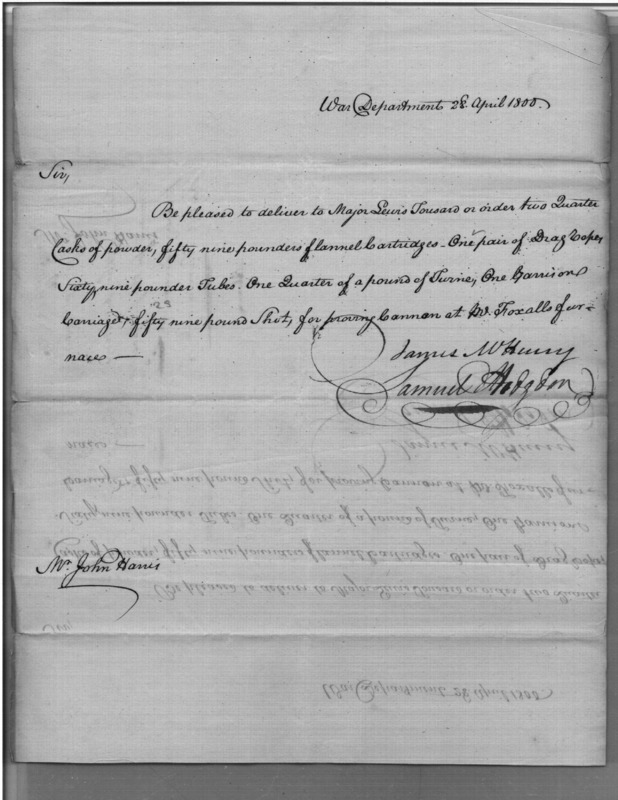 War Department 28. April 1800.
Sir,
Be pleased to deliver to Major Lewis Tousard or order two Quarter
Casks of powder, fifty nine pounders flannel Cartridges - One pair of Drag Ropes
Sixty nine pounder Tubes. One Quarter of a pound of Turne, One Garrison
Carriage, fifty nine pound Shot, for proving Cannon at Mr. Foxalls fur-
nace —
James McHenry
Samuel Hodgdon
Mr. John Harris